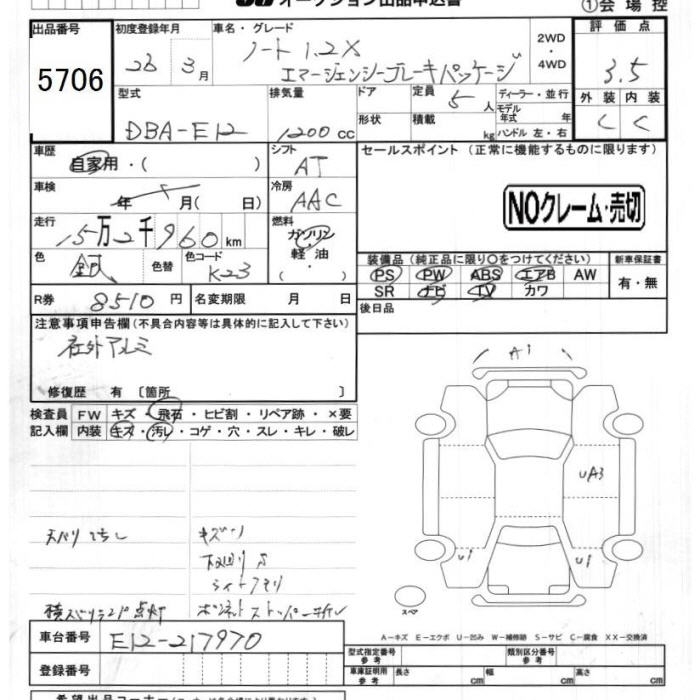 オークション出品申込書
①会場控
出品番号 初度登録年月 車名・グレード 2WD 評価点
5706 26年 3月 ノート 1.2X ・ 3.5
エマージェンシーブレーキパッケージ 4WD
型式 排気量 ドア 定員 5人 ディーラー・並行 外装 内装
DBA-E12 1200cc 形状 積載 kg モデル年式 年 C C
ハンドル 左・右
車歴 自家用・( ) シフト AT セールスポイント (正常に機能するものに限ります)
車検 年 月( 日) 冷房 AAC NOクレーム・売切
走行 15万2千960km 燃料 ガソリン
軽油・( )
色 銀 色替 色コード K23
装備品(純正品に限り○をつけてください) 新車保証書
PS PW ABS エアB AW 有・無
SR ナビ TV カワ
R券 8510円 名変期限 月 日 後日品
注意事項申告欄(不具合内容等は具体的に記入して下さい)
社外アルミ
修復歴 有 〔箇所 〕
A1
検査員 FW キズ・飛石・ヒビ割・リペア跡・×要
記入欄 内装 キズ・汚レ・コゲ・穴・スレ・キレ・破レ
UA3
U1 U1
キズ
スペア
点灯
A−キズ E−エクボ U−凹み W−補修跡 S−サビ C−腐食 XX−交換済
車台番号 E12-217970
型式指定番号 参考 類別区分番号 参考
登録番号 車庫証明用 参考 長さ cm 幅 cm 高さ cm